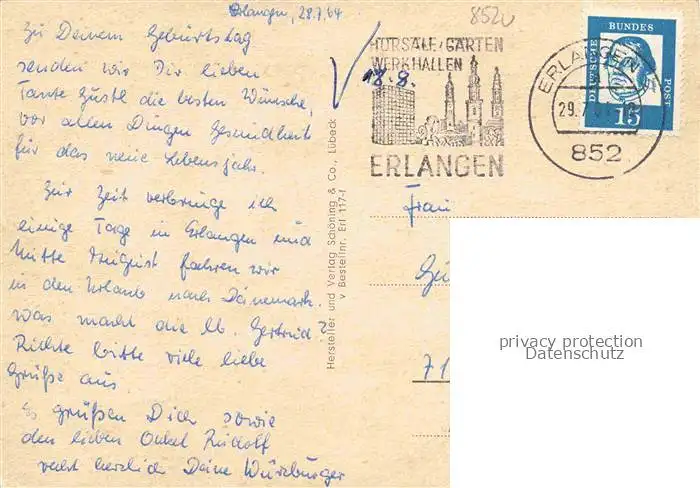 Erlangen, 28.7.64
Zu Deinem Geburtstag
senden wir Dir lieben
Tante Gustl die besten Wünsche,
vor allen Dingen Gesundheit
für das neue Lebensjahr.
Zur Zeit verbringe ich
einige Tage in Erlangen und
Mitte August fahren wir
in den Urlaub nach Dänemark.
Was macht die lb. Gertrud?
Richte bitte viele liebe
Grüße aus
Es grüßen Dich sowie
den lieben Onkel Rudolf
recht herzlich Deine Würzburger
Hersteller und Verlag Schöning & Co., Lübeck
v Bestellnr. Erl 117-f
18.8.
HÖRSÄLE/GÄRTEN
WERKHALLEN
ERLANGEN
ERLANGEN
29.7
852
DEUTSCHE
BUNDES
POST
15
Frau
71
privacy protection
Datenschutz